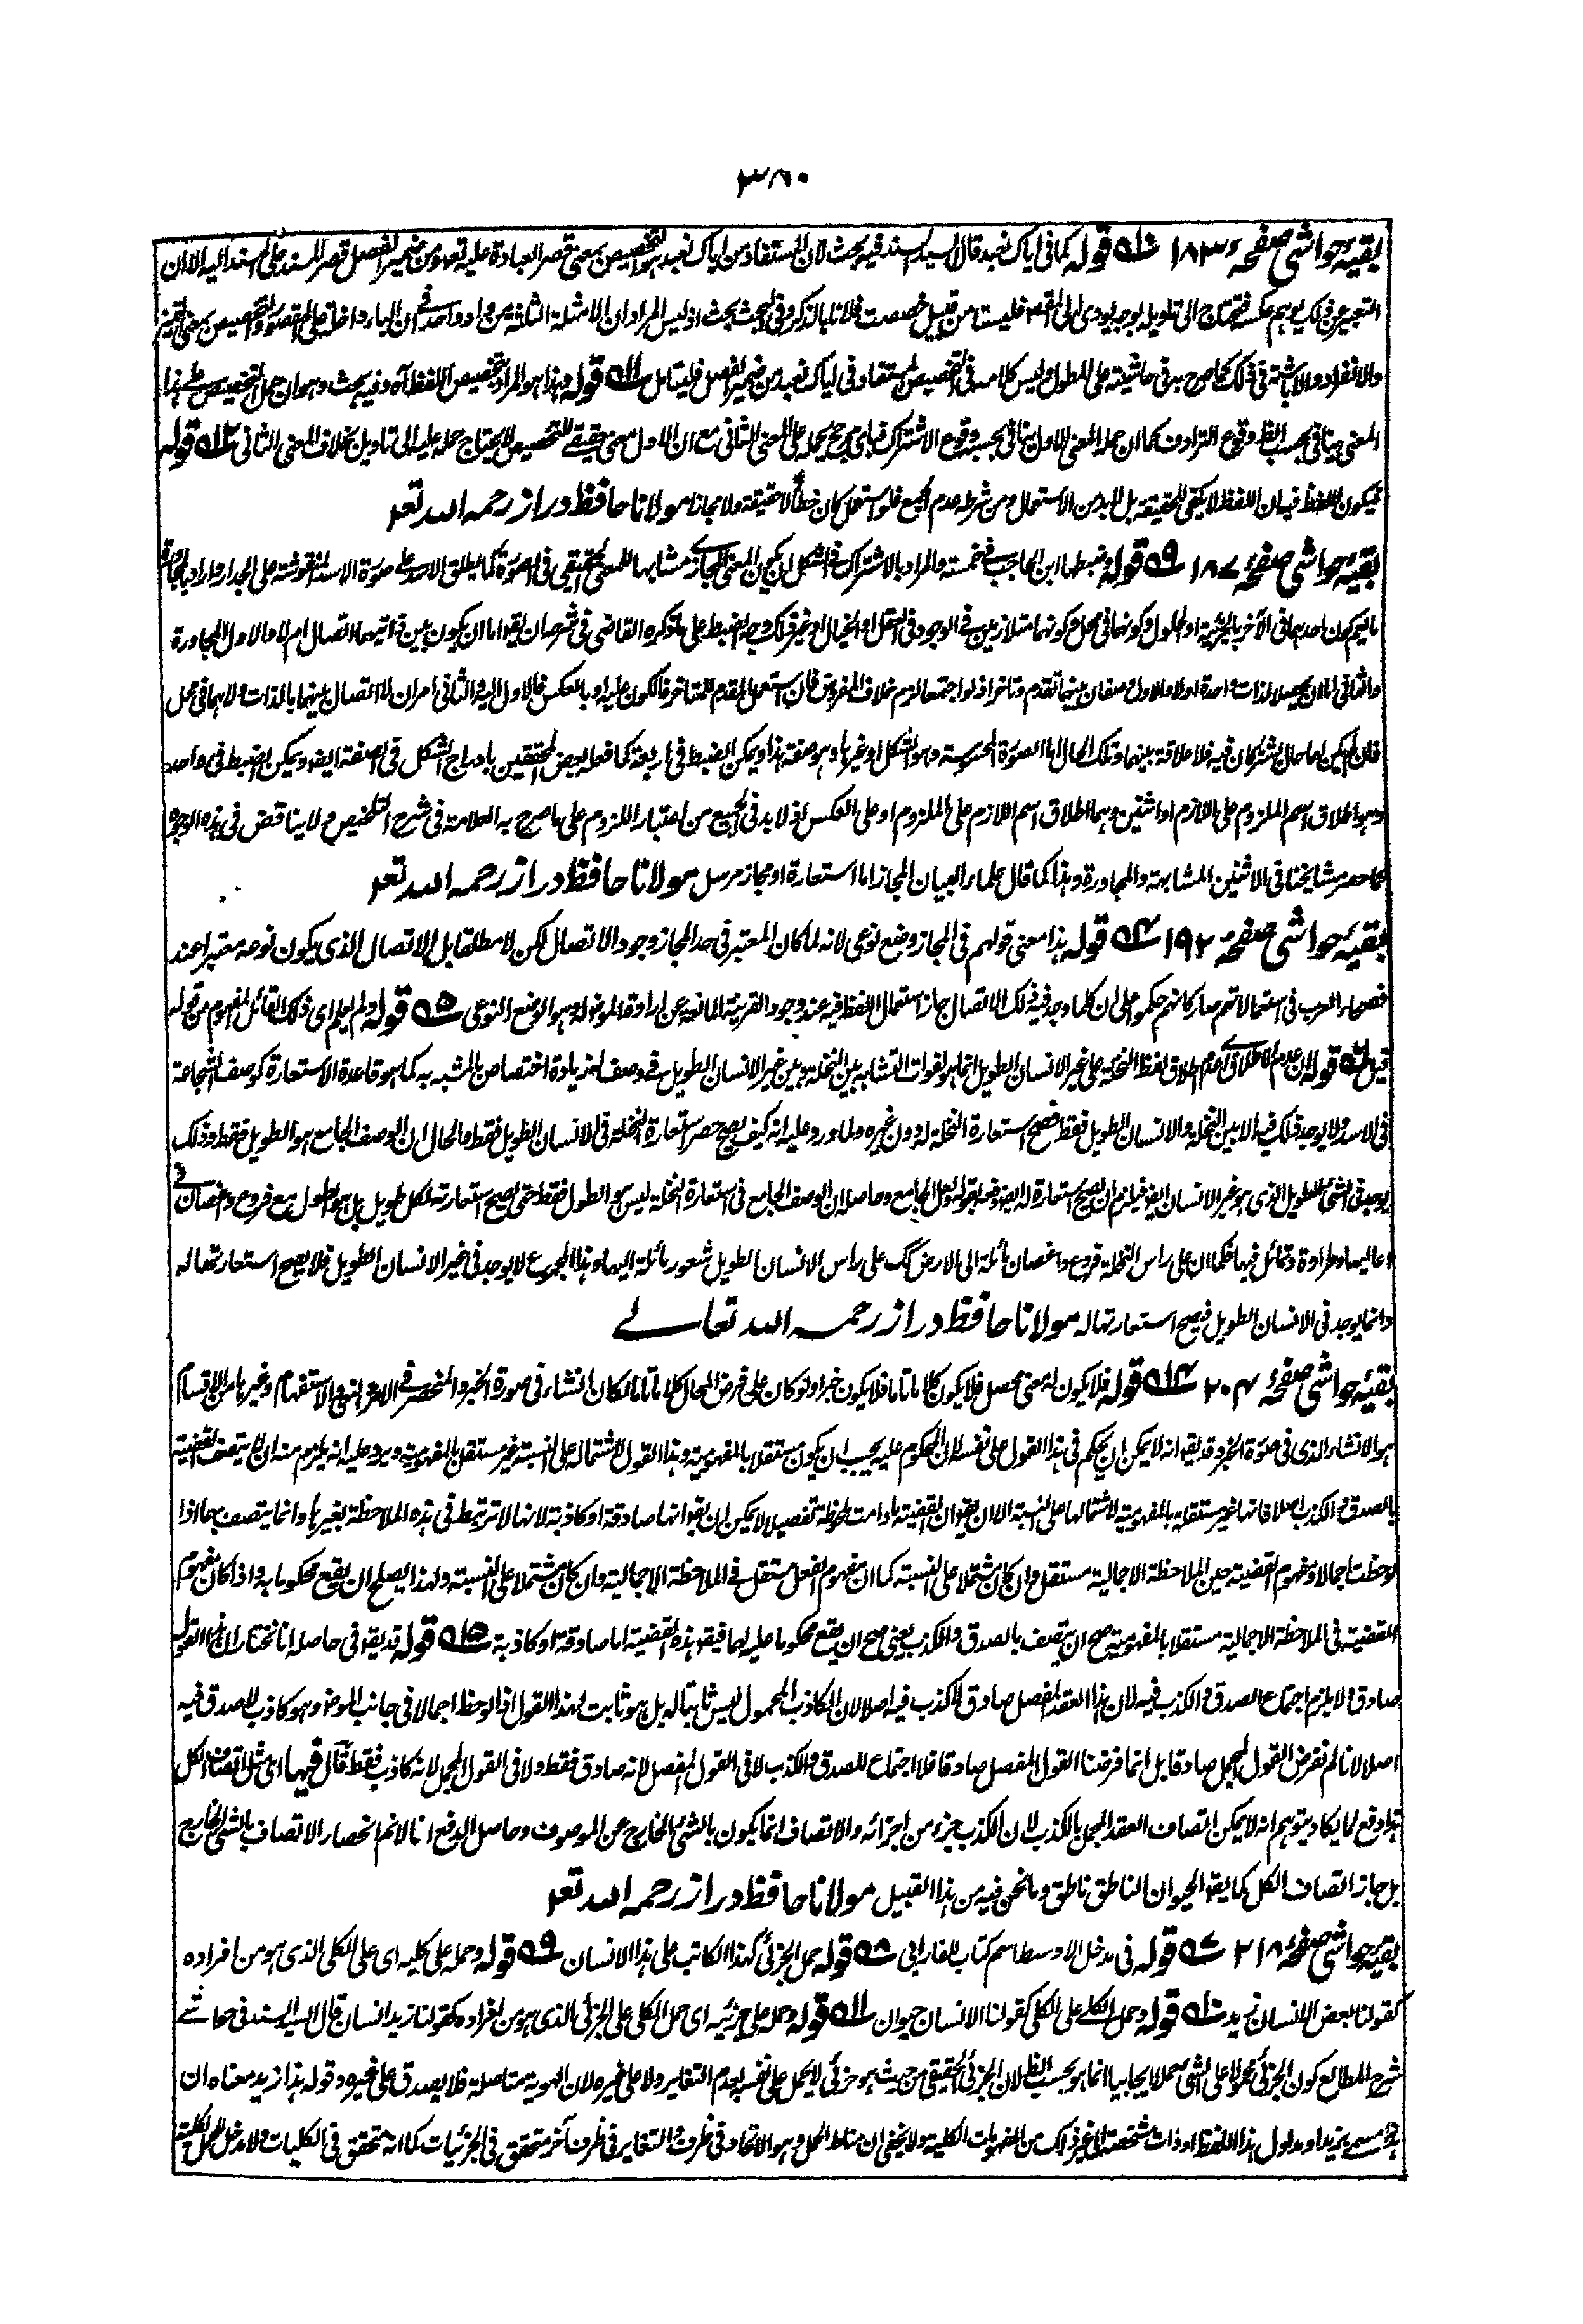 ٣٨٠
بقیۃ حواشی صفحہ ١٨٣ ١٠ قوله کما فی ایاک نعبد قال السید السند فیه بحث لان المستفاد من ایاک نعبد هو التخصیص بمعنی قصر العبادة علیه تعہ ومن ضمیر الفصل قصر المسند علی المسند الیه الا ان
التعبیر عن ذلک یوهم عکسه فتحتاج الی تاویله بوجه یودی الی المقصود فلیستا من قبیل خصصت فلانا بالذکر وفی البحث بحث اذ لیس المراد ان الامثلة الثلثة من واد واحد فی ان الباء داخلة علی المقصور والتخصیص بمعنی التمیز
والانفراد والا شبهة فی ذلک کما صرح به فی حاشیته علی المطول ولیس کلامه فی التخصیص المستفاد فی ایاک نعبد من ضمیر الفصل فلیتامل ١١ قوله وهذا هو المراد بتخصیص اللفظ آه وفیه بحث وهو ان حمل التخصیص علی هذا
المعنی ینافی بحسب الظ وقوع الترادف کما ان حمله المعنی الاول ینافی بحسبه وقوع الاشتراک فبای مرجح یحمله علی المعنی الثانی مع ان الاول معنی حقیقی للتخصیص لا یحتاج حمله علیه الی تاویل بخلاف المعنی الثانی ١٢ قوله
فیکون اللفظ فیه ان اللفظ لا یکفی للحقیقة بل لا بد من الاستعمال ومن شرطه عدم الجمع فلو استعمل کان خطأ لا حقیقة ولا مجازا مولانا حافظ دراز رحمه الله تعہ
بقیۃ حواشی صفحہ ١٨٧ ٩ قوله وضبطها ابن الحاجب فی خمسة والمراد بالاشتراک فی الشکل ان یکون المعنی المجازی مشابها للمعنی الحقیقی فی الصورة کما یطلق الاسد علی صورة الاسد المنقوشة علی الجدار واراد بالمجاورة
ما یعم کون احدهما فی الآخر بالجزئیة او الحلول وکونهما فی محل وکونهما متلازمین فی الوجود فی العقل او الخیال او غیر ذلک وجه الضبط علی ما ذکره القاضی فی شرحه ان یقہ اما ان یکون بین ذاتیهما اتصال ام لا والاول المجاورة
والثانی اما ان یحصلا لذات واحدة اولا والاول وصفان بینهما تقدم وتاخر اذ لو اجتمعا لزم خلاف المفروض فان استعمل المقدم للمتاخر فالکون علیه او بالعکس فالاول الیه والثانی امران لا اتصال بینهما بالذات ولا هما فی محل
فان لم یکن لهما حال یشترکان فیه فلا علاقة بینهما وتلک الحال اما الصورة المحسوسة وهو الشکل او غیرها وهو صفة هذا ویمکن الضبط فی اربعة کما فعله بعض المحققین بادراج الشکل فی الصفة ایضا ویمکن الضبط فی واحد
وهو اطلاق اسم الملزوم علی اللازم او اثنین وهما اطلاق اسم اللازم علی الملزوم او علی العکس اذ لا بد فی الجمیع من اعتبار اللزوم علی ما صرح به العلامة فی شرح التلخیص ولا یناقض فی هذه الوجوه
کما حصر مشایخنا فی الاثنین المشابهة والمجاورة وهذا کما قال علماء البیان المجاز اما استعارة او مجاز مرسل مولانا حافظ دراز رحمه الله تعہ
بقیۃ حواشی صفحہ ١٩٢ ٤ قوله هذا معنی قولهم فی المجاز وضع نوعی لانه لما کان المعتبر فی حد المجاز وجود الاتصال لکن لا مطلقا بل الاتصال الذی یکون نوعه معتبرا عند
فصحاء العرب فی استعمالاتهم صار کانهم حکموا علی ان کلما وجد فیه ذلک الاتصال جاز استعمال اللفظ فیه عند وجود القرینة المانعة عن ارادة الموضوع له وهو الوضع النوعی ٥ قوله ولم یعلم ای ذلک القائل المفهوم من قوله
قیل ٦ قوله ان عدم الاطلاق ای عدم اطلاق لفظ النخلة علی غیر الانسان الطویل انما هو لفوات التشابه بین النخلة وبین غیر الانسان الطویل فی وصف له زیادة اختصاص بالمشبه به کما هو قاعدة الاستعارة کوصف الشجاعة
فی الاسد ولا یوجد ذلک فیه الا بین النخلة والانسان الطویل فقط فصح استعارة النخلة له دون غیره ولما ورد علیه انه کیف یصح حصر استعارة النخلة فی الانسان الطویل فقط والحال ان الوصف الجامع هو الطویل فقط وذلک
یوجد فی الشئ الطویل الذی هو غیر الانسان ایضا فیلزم ان یصح استعارة له ایضا دفعه بقوله ولعل الجامع وحاصله ان الوصف الجامع فی استعارة النخلة لیس هو الطول فقط حتی یصح استعارته لکل طویل بل هو طول مع فروع واغصان فی
اعالیها وطراوة وتمائل فیها فکما ان علی راس النخلة فروع واغصان مائلة الی الارض کک علی راس الانسان الطویل شعور مائلة الیها وهذا المجموع لا یوجد فی غیر الانسان الطویل فلا یصح استعارتها له
وانما یوجد فی الانسان الطویل فیصح استعارتها له مولانا حافظ دراز رحمه الله تعالے
بقیۃ حواشی صفحہ ٢٠٤ ١٤ قوله فلا یکون له معنی محصل فلا یکون کلاما تاما فلا یکون خبرا ولو کان علی فرض المحال کلاما تاما لکان انشاء فی صورة الخبر والمنحصر فی الامر والنهی والاستفهام وغیرها من الاقسام
هو الانشاء الذی فی صورة الخبر وقد یقہ انه لا یمکن ان یحکم فی هذا القول علی نفسه لان المحکوم علیه یجب ان یکون مستقلا بالمفهومیة وهذا القول لاشتماله علی النسبة غیر مستقل بالمفهومیة ویرد علیه انه یلزم منه ان لا یتصف القضیة
بالصدق والکذب اصلا فانها غیر مستقلة بالمفهومیة لاشتمالها علی النسبة الا ان یقہ ان القضیة ما دامت ملحوظة تفصیلا لا یمکن ان یقہ انها صادقة او کاذبة لانها لا ترتبط فی هذه الملاحظة بغیرها وانما یتصف بهما اذا
لوحظت اجمالا ومفهوم القضیة حین الملاحظة الاجمالیة مستقل وان کان مشتملا علی النسبة کما ان مفهوم الفعل مستقل فی الملاحظة الاجمالیة وان کان مشتملا علی النسبة ولهذا یصلح ان یقع محکوما به واذا کان مفهوم
القضیة فی الملاحظة الاجمالیة مستقلا بالمفهومیة صح ان یتصف بالصدق والکذب یعنی صح ان یقع محکوما علیه لهما فیقہ هذه القضیة اما صادقة او کاذبة ١٥ قوله قد یقہ فی حاصله انا نختار ان هذا القول
صادق ولا یلزم اجتماع الصدق والکذب فیه لان هذا العقد المفصل صادق لا کذب فیه اصلا لان الکاذب المحمول لیس ثابتا له بل هو ثابت لهذا القول اذا لوحظ اجمالا فی جانب الموضوع وهو کاذب لا صدق فیه
اصلا لانا لم نفرض القول المجمل صادقا بل انما فرضنا القول المفصل صادقا فلا اجتماع للصدق والکذب لا فی القول المفصل لانه صادق فقط ولا فی القول المجمل لانه کاذب فقط قال فیها ای مثل اتصاف الکل
هذا دفع لما یکاد یتوهم انه لا یمکن اتصاف العقد المجمل بالکذب لان الکذب جزء من اجزائه والاتصاف انما یکون بالشئ الخارج عن الموصوف وحاصل الدفع انا لا نم انحصار الاتصاف بالشئ الخارج
بل جاز اتصاف الکل کما یقہ الحیوان الناطق ناطق وما نحن فیه من هذا القبیل مولانا حافظ دراز رحمه الله تعہ
بقیۃ حواشی صفحہ ٢١٨ ٧ قوله فی مدخل الاوسط اسم کتاب للفارابی ٨ قوله حمل الجزئی کهذا الکاتب علی هذا الانسان ٩ قوله وحمله علی کلیه ای علی الکلی الذی هو من افراده
کقولنا بعض الانسان زید ١٠ قوله وحمل الکلی علی الکلی کقولنا الانسان حیوان ١١ قوله وحمله علی جزئیه ای حمل الکلی علی الجزئی الذی هو من افراده کقولنا زید انسان قال السید السند فی حاشیة
شرح المطالع کون الجزئی محمولا علی الشئ حملا ایجابیا انما هو بحسب الظ لان الجزئی الحقیقی من حیث هو جزئی لا یحمل علی نفسه لعدم التغایر ولا علی غیره لان الهویة متاصلة فلا یصدق علی غیره وقوله هذا زید معناه ان
هذا مسمے بزید او مدلول هذا اللفظ او ذات مشخصة الی غیر ذلک من المفهومات الکلیة ولا یخفی ان مناط الحمل وهو الاتحاد فی ظرف والتغایر فی ظرف آخر متحقق فی الجزئیات کما انه متحقق فی الکلیات ولا مدخل للکلیة